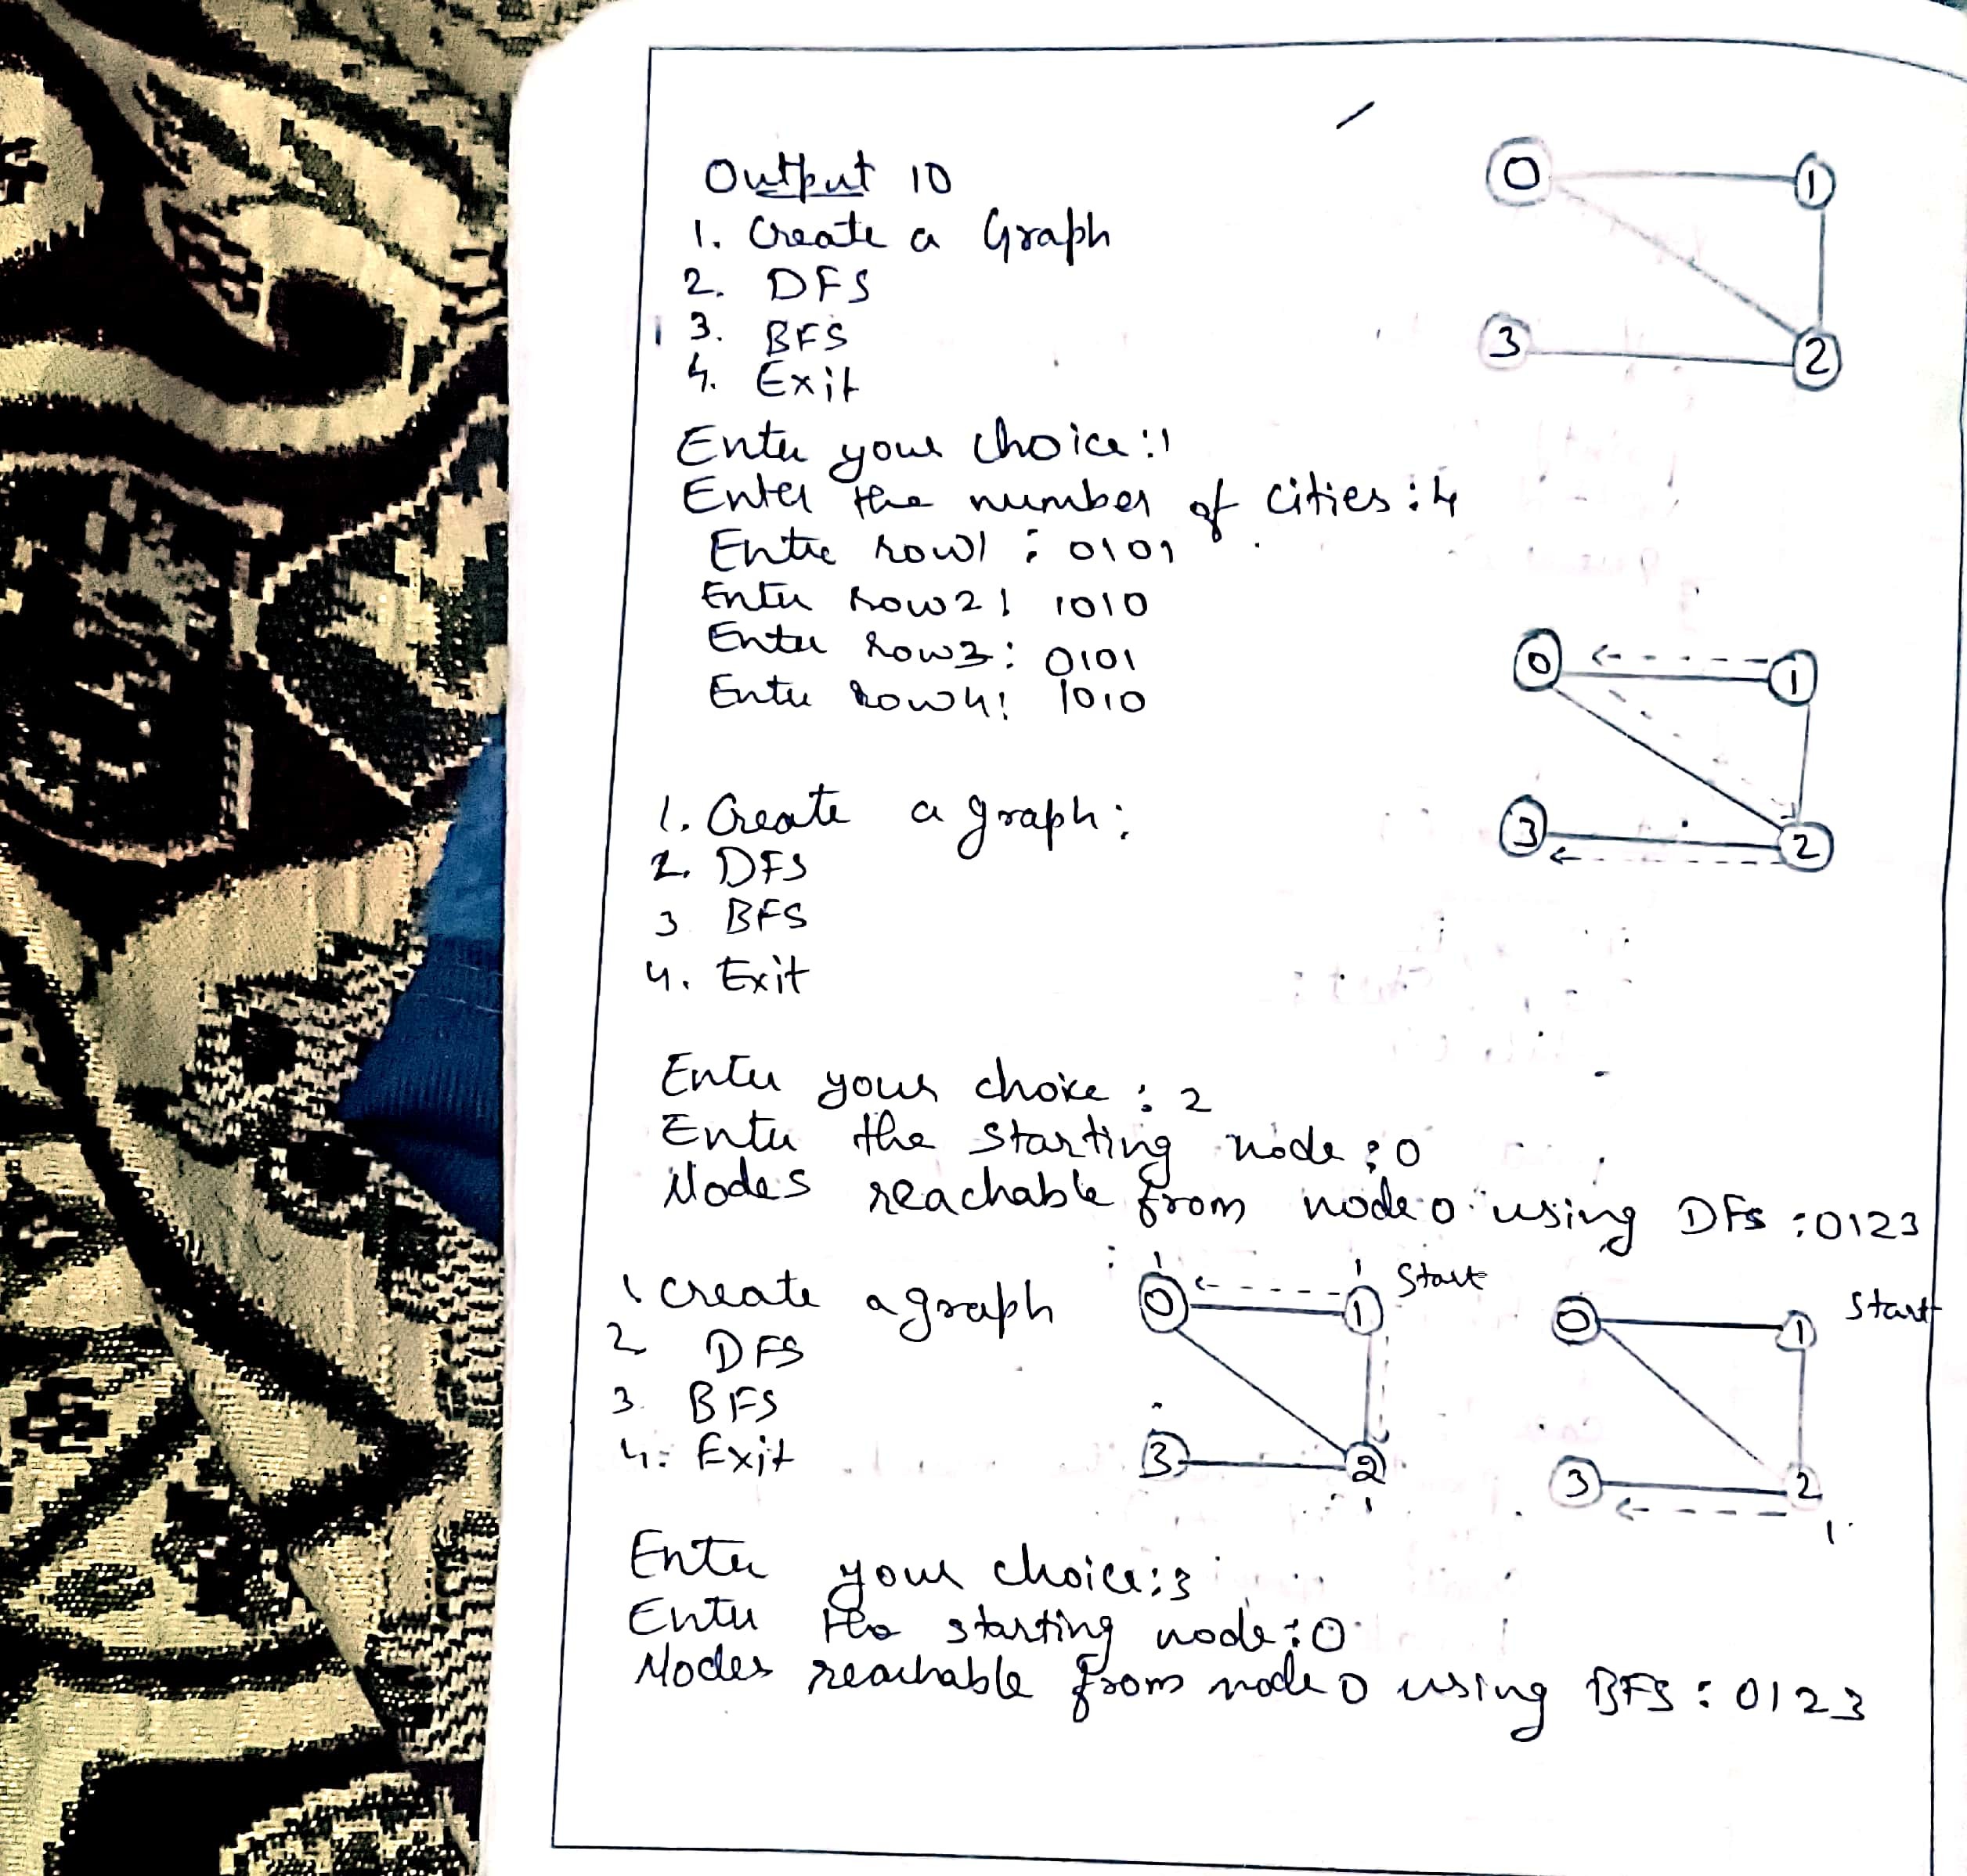 Output 10
1. Create a Graph
2. DFS
3. BFS
4. Exit
Enter your choice:1
Enter the number of cities:4
Enter row1 : 0101
Enter row2 : 1010
Enter row3: 0101
Enter row4: 1010
0
1
3
2
1. Create a graph:
2. DFS
3 BFS
4. Exit
0
1
3
2
Enter your choice : 2
Enter the starting node : 0
Nodes reachable from node 0 using DFS : 0123
1 create a graph
2 DFS
3. BFS
4: Exit
0
1
Start
3
2
0
1
Start
3
2
Enter your choice:3
Enter the starting node : 0
Nodes reachable from node 0 using BFS : 0123